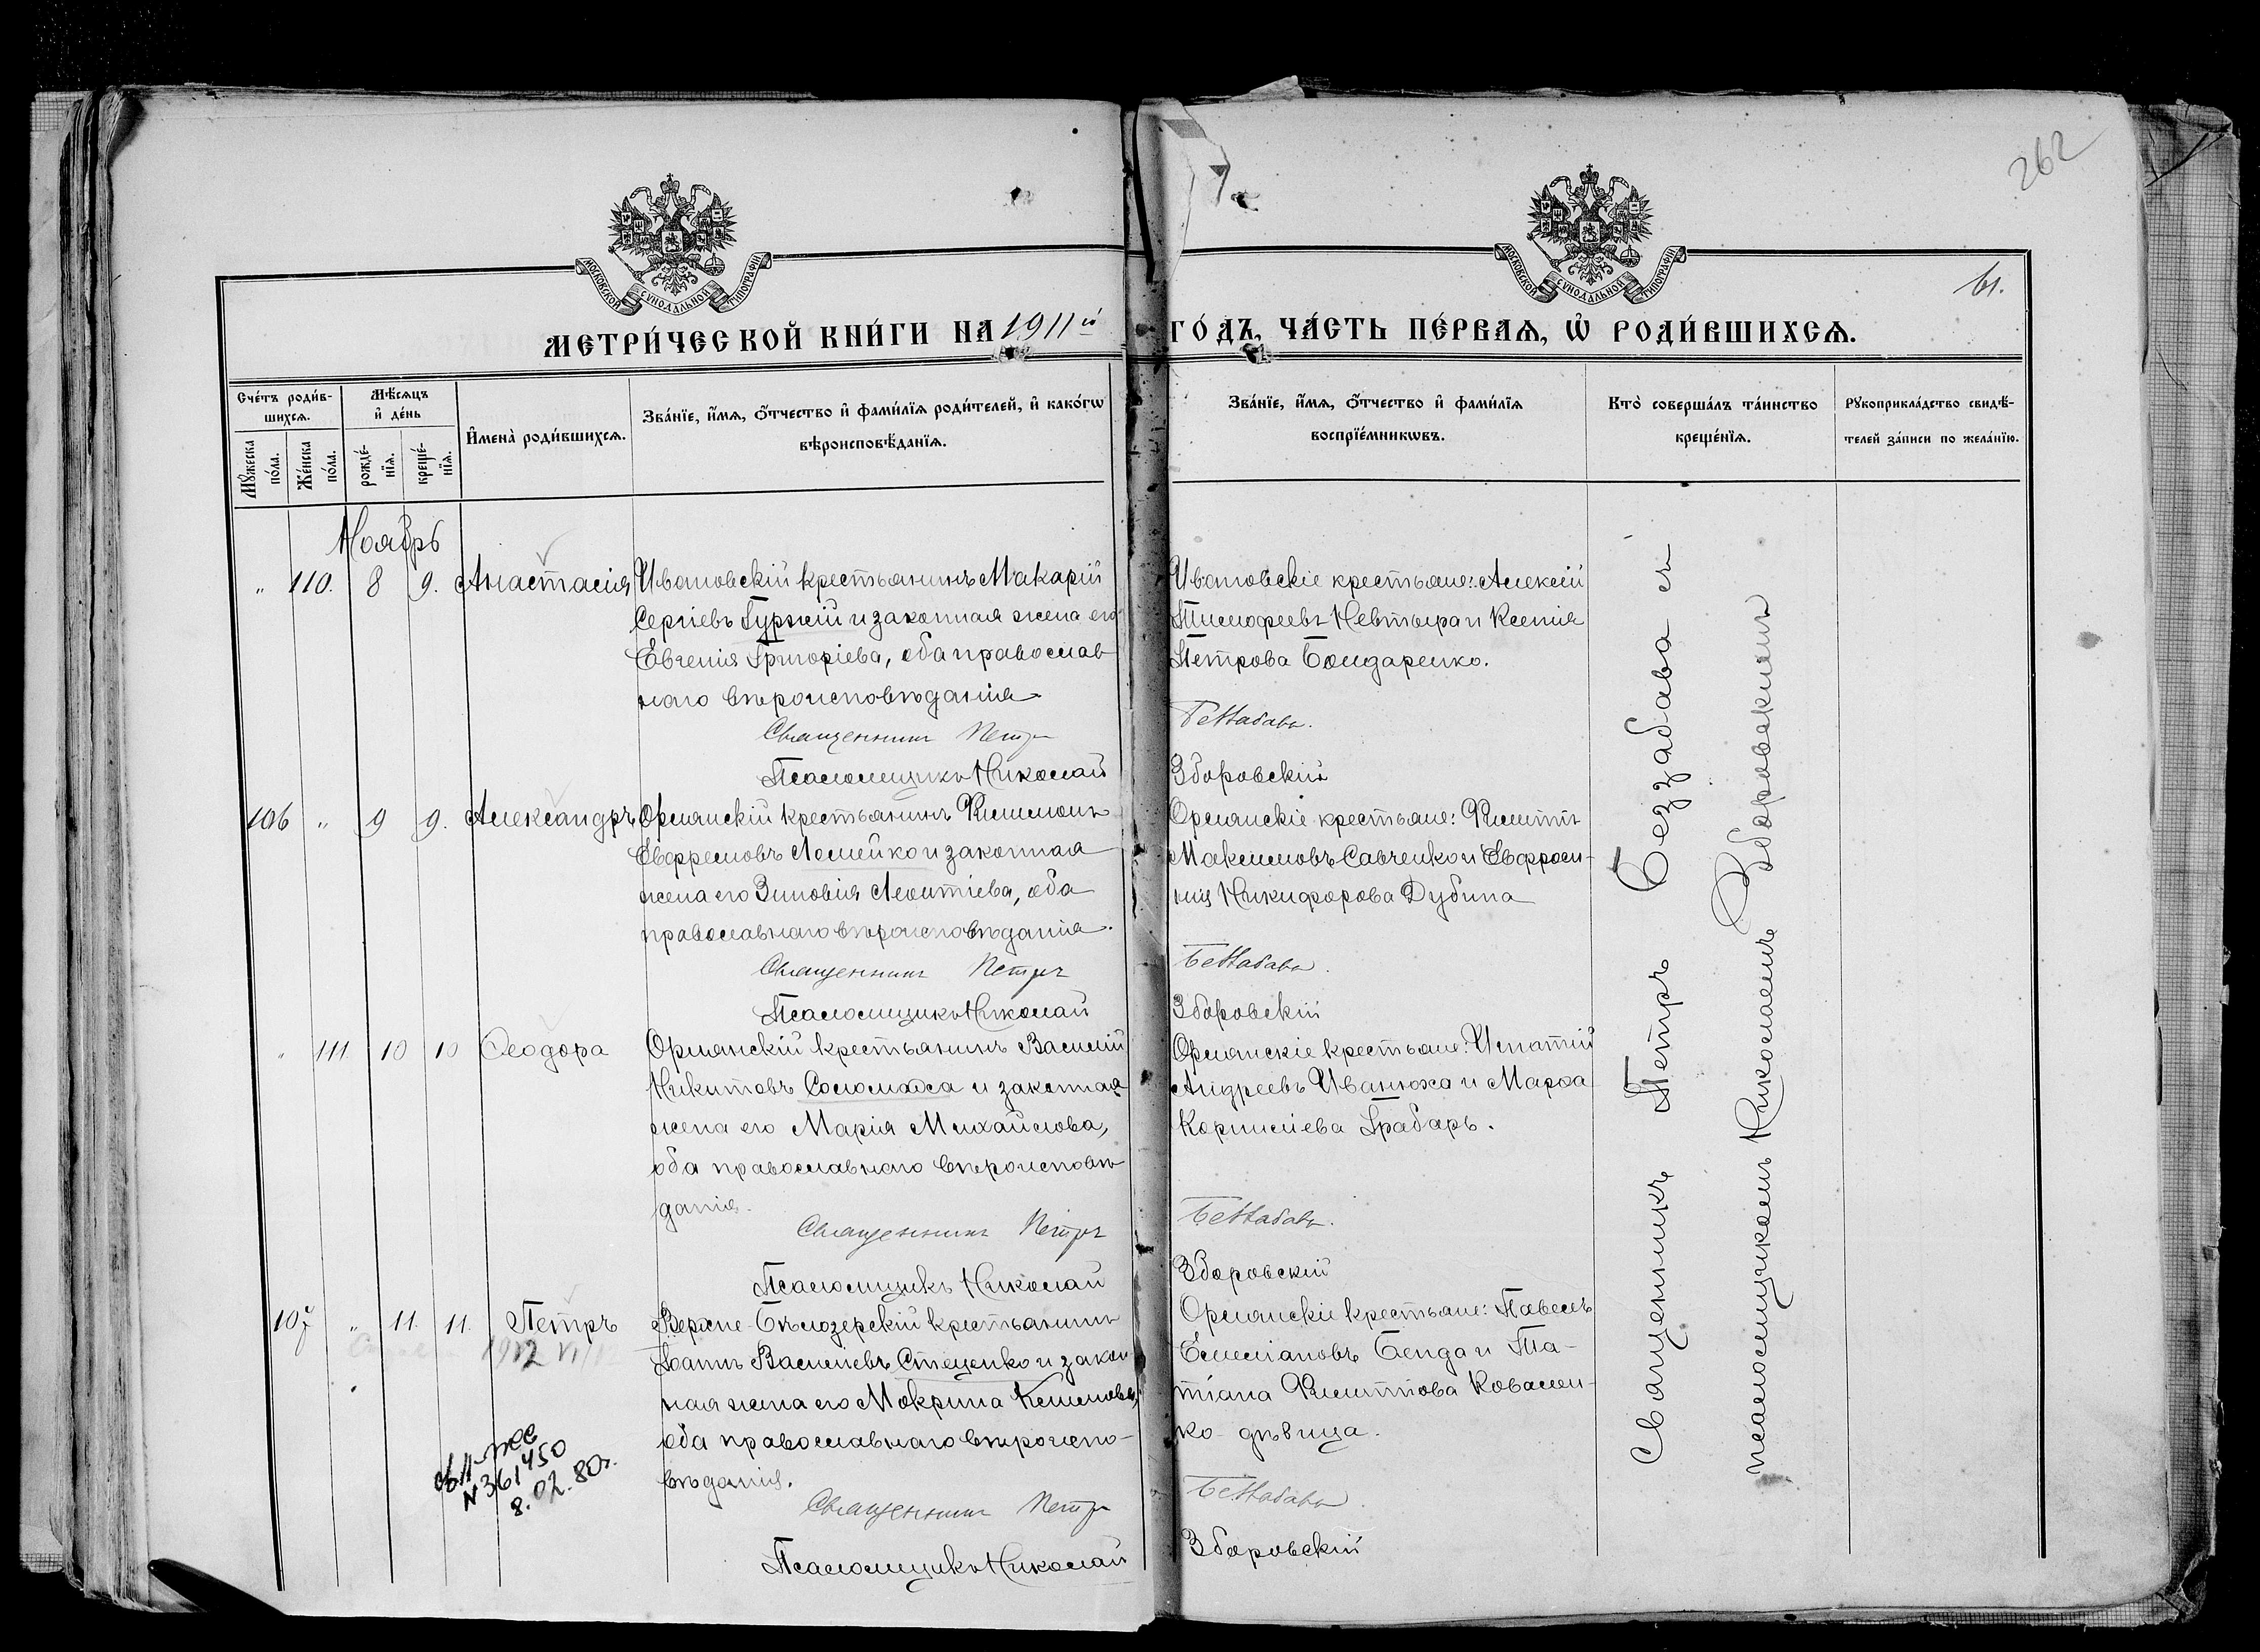 262
МОСКОВСКОЙ СУНОДАЛЬНОЙ ТИПОГРАФІИ
МОСКОВСКОЙ СУНОДАЛЬНОЙ ТИПОГРАФІИ
61.
МЕТРИ́ЧЕСКОЙ КНИ́ГИ НА 1911й ГО́ДЪ, ЧА́СТЬ ПЕ́РВАѦ, Ѽ РОДИ́ВШИХСѦ.
Сче́тъ роди́в-
шихсѧ.
Мꙋ́жеска
по́ла.
Же́нска
по́ла.
Мѣ́сѧцъ
и҆ де́нь
рожде́-
нїѧ.
креще́-
нїѧ.
И҆мена̀ роди́вшихсѧ.
Зва́нїе, и҆́мѧ, ѻ҆́тчество и҆ фами́лїѧ роди́телей, и҆ како́гѡ
вѣроисповѣ́данїѧ.
Зва́нїе, и҆́мѧ, ѻ҆́тчество и҆ фами́лїѧ
воспрїе́мникѡвъ.
Кто̀ соверша́лъ та́инство
креще́нїѧ.
Рꙋкоприкла́дство свидѣ́-
телей за́писи по жела́нїю.
Ноябрь
" 110. 8 9. Анастасія
Ивановскій крестьянинъ Макарій
Сергіевъ Гуржій и законная жена его
Евгенія Григоріева, оба православ
наго вѣроисповѣданія
Священникъ Петръ
Псаломщикъ Николай
Ивановскіе крестьяне: Алексій
Тимофеевъ Невтыра и Ксенія
Петрова Бондаренко.
Беззабава.
Зборовскій
106 " 9 9. Александръ
Орлянскій крестьянинъ Филимонъ
Евфремовъ Ломейко и законная
жена его Зиновія Леонтіева, оба
православнаго вѣроисповѣданія.
Священникъ Петръ
Псаломщикъ Николай
Орлянскіе крестьяне: Филиппъ
Максимовъ Савченко и Евфроси-
нія Никифорова Дубина
Беззабава.
Зборовскій
" 111 10 10 Ѳеодора
Орлянскій крестьянинъ Василій
Никитовъ Соломаха и законная
жена его Марія Михайлова,
оба православнаго вѣроисповѣ
данія.
Священникъ Петръ
Псаломщикъ Николай
Орлянскіе крестьяне: Игнатій
Андреевъ Иванюха и Марѳа
Корниліева Грабарь.
Беззабава.
Зборовскій
107 " 11. 11. Петръ
1912
Верхне-Бѣлозерскій крестьянинъ
Іоаннъ Васильевъ Стеценко и закон
ная жена его Мокрина Климова,
оба православнаго вѣроиспо-
вѣданія.
Священникъ Петръ
Псаломщикъ Николай
Орлянскіе крестьяне: Павелъ
Емеліановъ Бенда и Та-
тіана Филиппова Ковален-
ко дѣвица.
Беззабава.
Зборовскій
N 361450
8.02.80г.
Священникъ Петръ Беззабава съ
псаломщикомъ Николаемъ Зборовскимъ